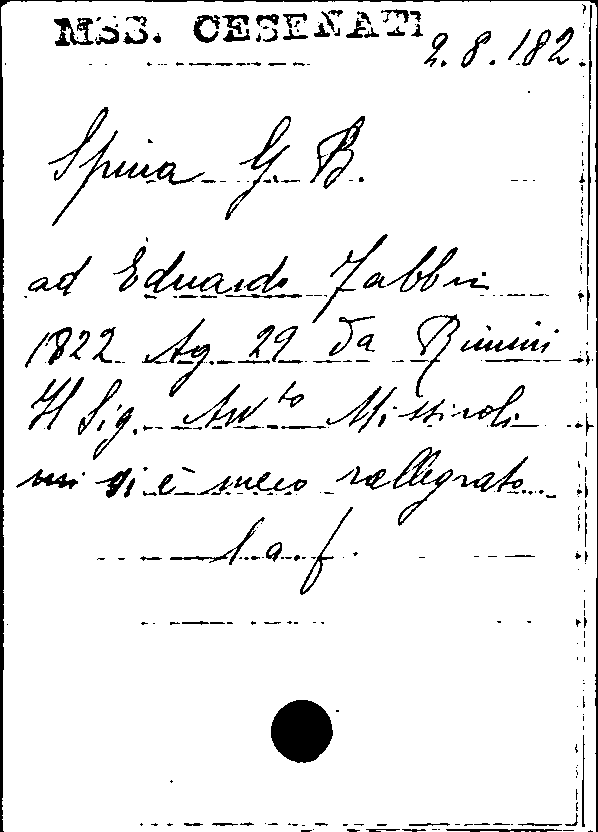 MSS. CESENATI
2.8.182.
Spina G. B.
ad Eduardo Fabbri
1822 Ag 29 da Rimini
Il Sig. Avv.to Missiroli
si è meco rallegrato
l. a. f.